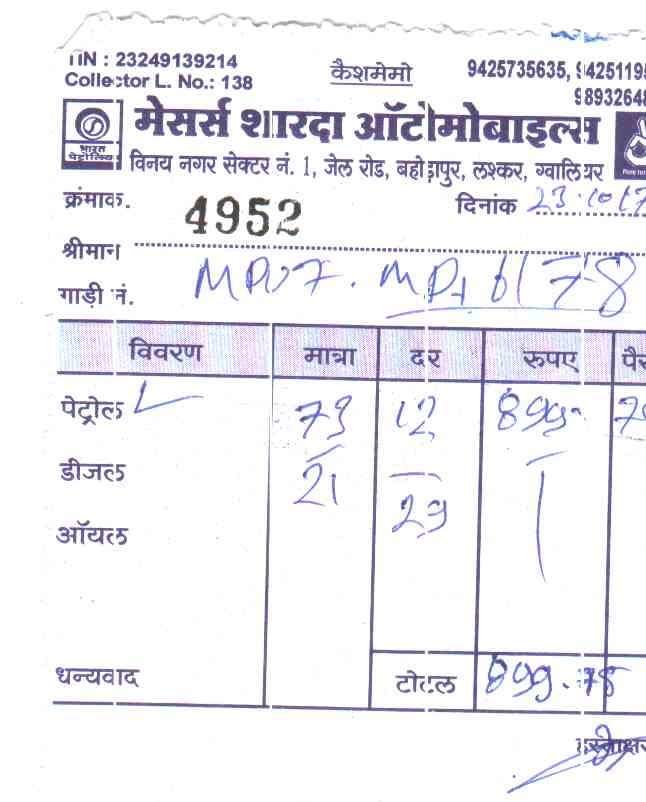 TIN : 23249139214
Collector L. No.: 138
कैशमेमो
9425735635, 9425119
9893264
भारत पेट्रोलियम
मेसर्स शारदा ऑटोमोबाइल्स
विनय नगर सेक्टर नं. 1, जेल रोड, बहोड़ापुर, लश्कर, ग्वालियर
क्रंमाक. 4952 दिनांक 23.10.17
श्रीमान
गाड़ी नं. MP07. MP 6178
विवरण मात्रा दर रुपए पै
पेट्रोल 73 12 899
डीजल 21 29
ऑयल
धन्यवाद टोटल 899.78
हस्ताक्षर